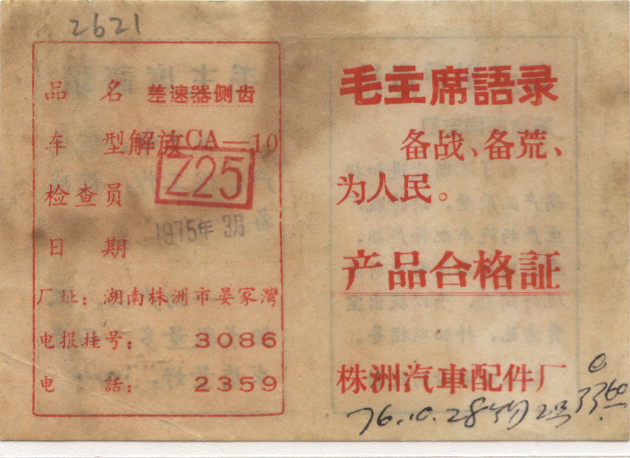 2621
品名 差速器侧齿
车型 解放CA—10
检查员 Z25
日期 1975年 3月
厂址：湖南株洲市晏家灣
电报挂号： 3086
电話： 2359
毛主席語录
备战、备荒、
为人民。
产品合格証
株洲汽車配件厂
76.10.28